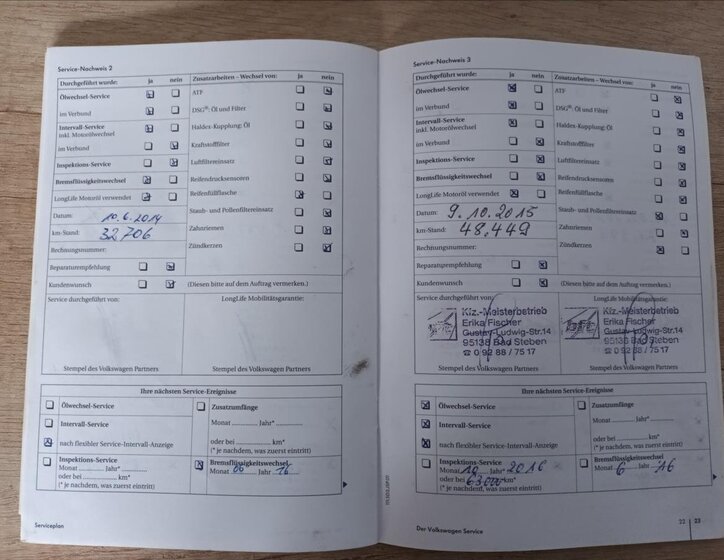 Service-Nachweis 2
Durchgeführt wurde: ja nein
Zusatzarbeiten – Wechsel von: ja nein
Ölwechsel-Service
ATF
im Verbund
DSG®: Öl und Filter
Intervall-Service
inkl. Motorölwechsel
Haldex-Kupplung: Öl
im Verbund
Kraftstofffilter
Inspektions-Service
Luftfiltereinsatz
Bremsflüssigkeitswechsel
Reifendrucksensoren
LongLife Motoröl verwendet
Reifenfüllflasche
Datum: 10.6.2014
Staub- und Pollenfiltereinsatz
km-Stand: 32706
Zahnriemen
Rechnungsnummer:
Zündkerzen
Reparaturempfehlung
Kundenwunsch
(Diesen bitte auf dem Auftrag vermerken.)
Service durchgeführt von:
LongLife Mobilitätsgarantie:
Stempel des Volkswagen Partners
Stempel des Volkswagen Partners
Ihre nächsten Service-Ereignisse
Ölwechsel-Service
Zusatzumfänge
Intervall-Service
Monat ............ Jahr* ............
nach flexibler Service-Intervall-Anzeige
oder bei ............ km*
(* je nachdem, was zuerst eintritt)
Inspektions-Service
Monat ............ Jahr* ............
oder bei ............ km*
(* je nachdem, was zuerst eintritt)
Bremsflüssigkeitswechsel
Monat 06 Jahr 16
Serviceplan
Service-Nachweis 3
Durchgeführt wurde: ja nein
Zusatzarbeiten – Wechsel von: ja nein
Ölwechsel-Service
ATF
im Verbund
DSG®: Öl und Filter
Intervall-Service
inkl. Motorölwechsel
Haldex-Kupplung: Öl
im Verbund
Kraftstofffilter
Inspektions-Service
Luftfiltereinsatz
Bremsflüssigkeitswechsel
Reifendrucksensoren
LongLife Motoröl verwendet
Reifenfüllflasche
Datum: 9.10.2015
Staub- und Pollenfiltereinsatz
km-Stand: 48.449
Zahnriemen
Rechnungsnummer:
Zündkerzen
Reparaturempfehlung
Kundenwunsch
(Diesen bitte auf dem Auftrag vermerken.)
Service durchgeführt von:
LongLife Mobilitätsgarantie:
Kfz.-Meisterbetrieb
Erika Fischer
Gustav-Ludwig-Str.14
95138 Bad Steben
☎ 0 92 88 / 75 17
Kfz.-Meisterbetrieb
Erika Fischer
Gustav-Ludwig-Str.14
95138 Bad Steben
☎ 0 92 88 / 75 17
Stempel des Volkswagen Partners
Stempel des Volkswagen Partners
Ihre nächsten Service-Ereignisse
Ölwechsel-Service
Zusatzumfänge
Intervall-Service
Monat ............ Jahr* ............
nach flexibler Service-Intervall-Anzeige
oder bei ............ km*
(* je nachdem, was zuerst eintritt)
Inspektions-Service
Monat 10 Jahr 2016
oder bei 63000 km*
(* je nachdem, was zuerst eintritt)
Bremsflüssigkeitswechsel
Monat 6 Jahr 16
Der Volkswagen Service
22 23